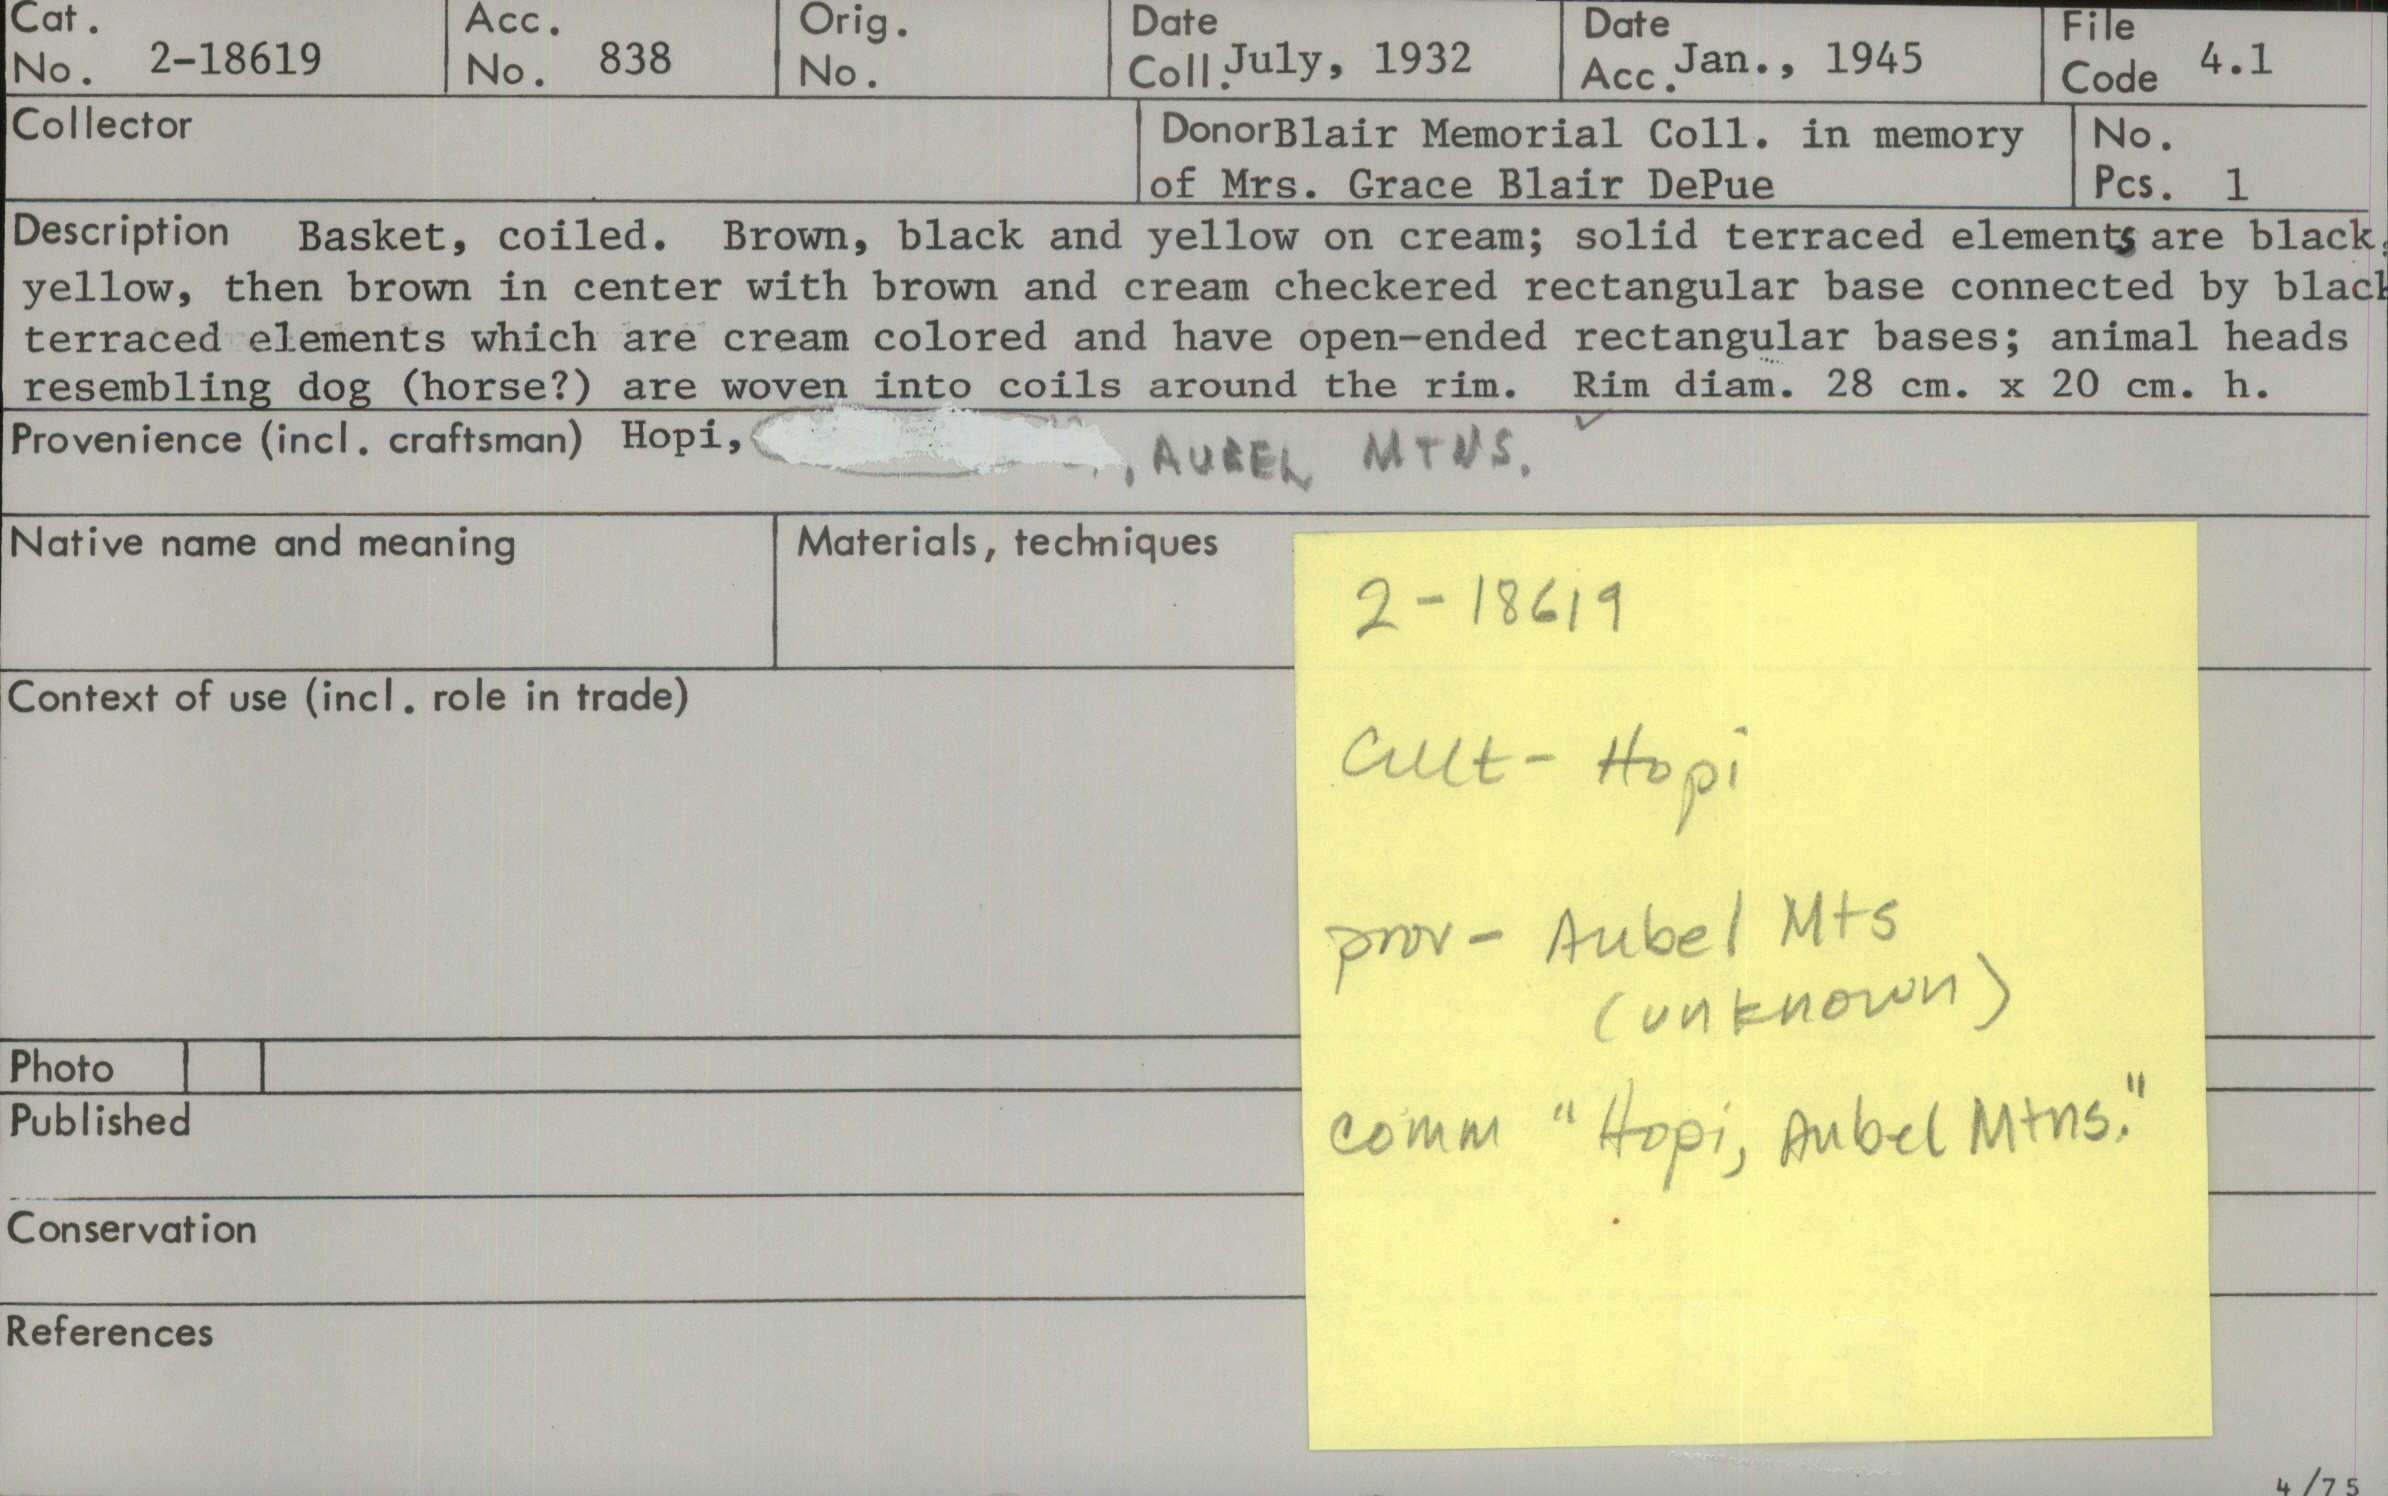 Cat. No. 2-18619
Acc. No. 838
Orig. No.
Date Coll. July, 1932
Date Acc. Jan., 1945
File Code 4.1
Collector
Donor Blair Memorial Coll. in memory
of Mrs. Grace Blair DePue
No. Pcs. 1
Description Basket, coiled. Brown, black and yellow on cream; solid terraced elements are black,
yellow, then brown in center with brown and cream checkered rectangular base connected by black
terraced elements which are cream colored and have open-ended rectangular bases; animal heads
resembling dog (horse?) are woven into coils around the rim. Rim diam. 28 cm. x 20 cm. h.
Provenience (incl. craftsman) Hopi, , AUBEL MTNS.
Native name and meaning
Materials, techniques
Context of use (incl. role in trade)
Photo
Published
Conservation
References
2-18619
Cult- Hopi
prov- Aubel Mts
(unknown)
comm "Hopi, Aubel Mtns."
4/75